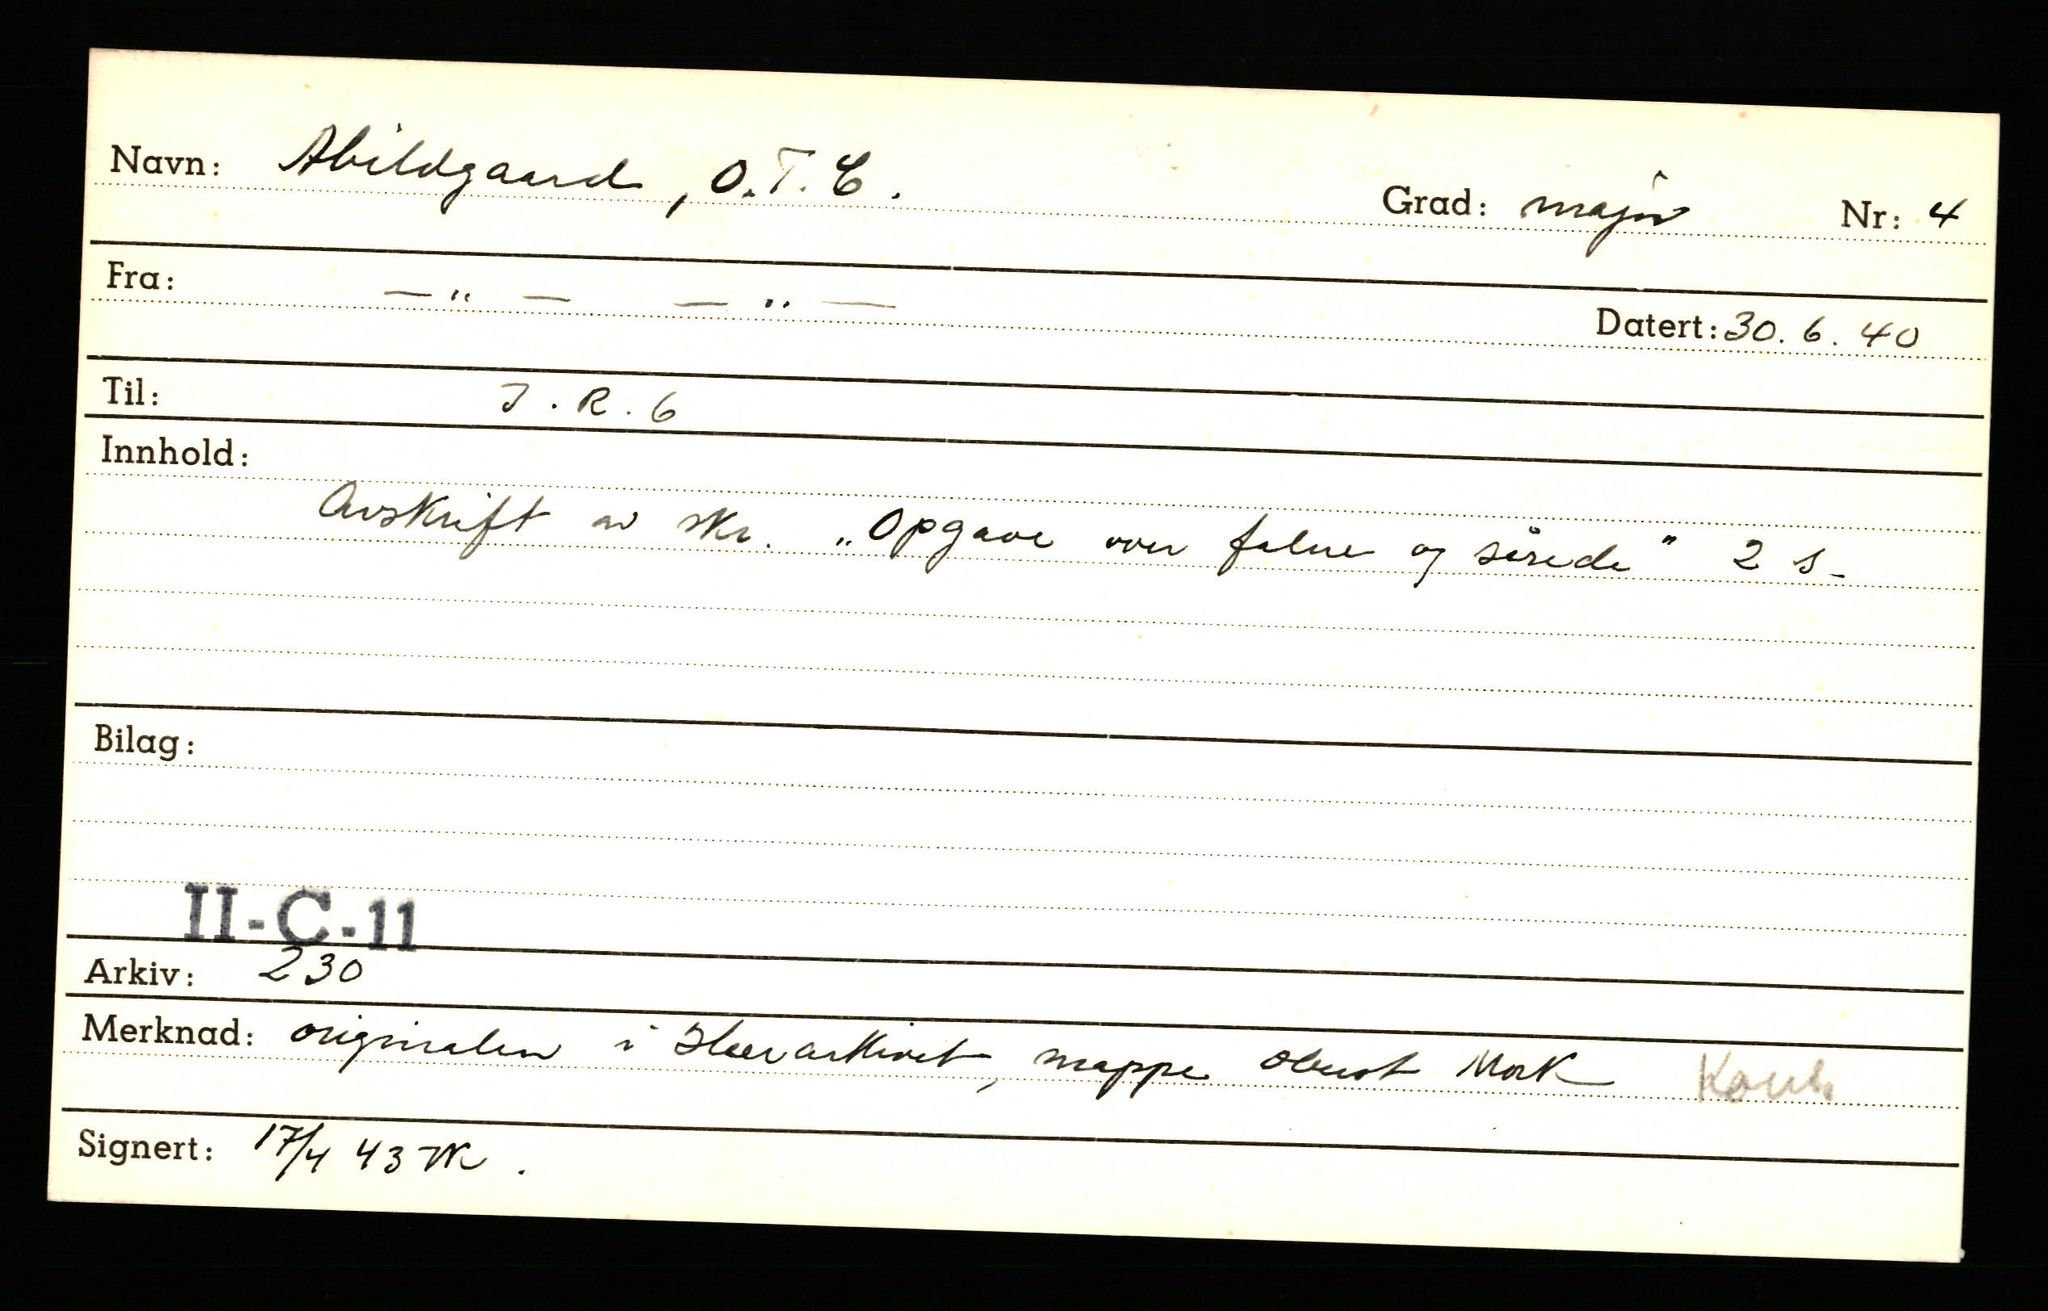 Navn: Abildgaard, O.T.C. Grad: major Nr: 4
Fra: — „ — — „ — Datert: 30.6.40
Til: I.R.6
Innhold:
Avskrift av skr. „Opgave over falne og sårede" 2 s.
Bilag:
II-C-11
Arkiv: 230
Merknad: originalen i Hærarkivet, mappe oberst Mork
Signert: 17/4 43